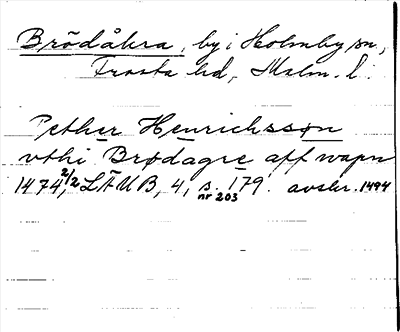 Brödåkra, by i Holmby sn,
Frosta hd, Malm. l.
Pether Henrichsson
vthi Brødagre aff wapn
1474 2/2, LÄUB, 4, s. 179. avskr. 1494
nr 203